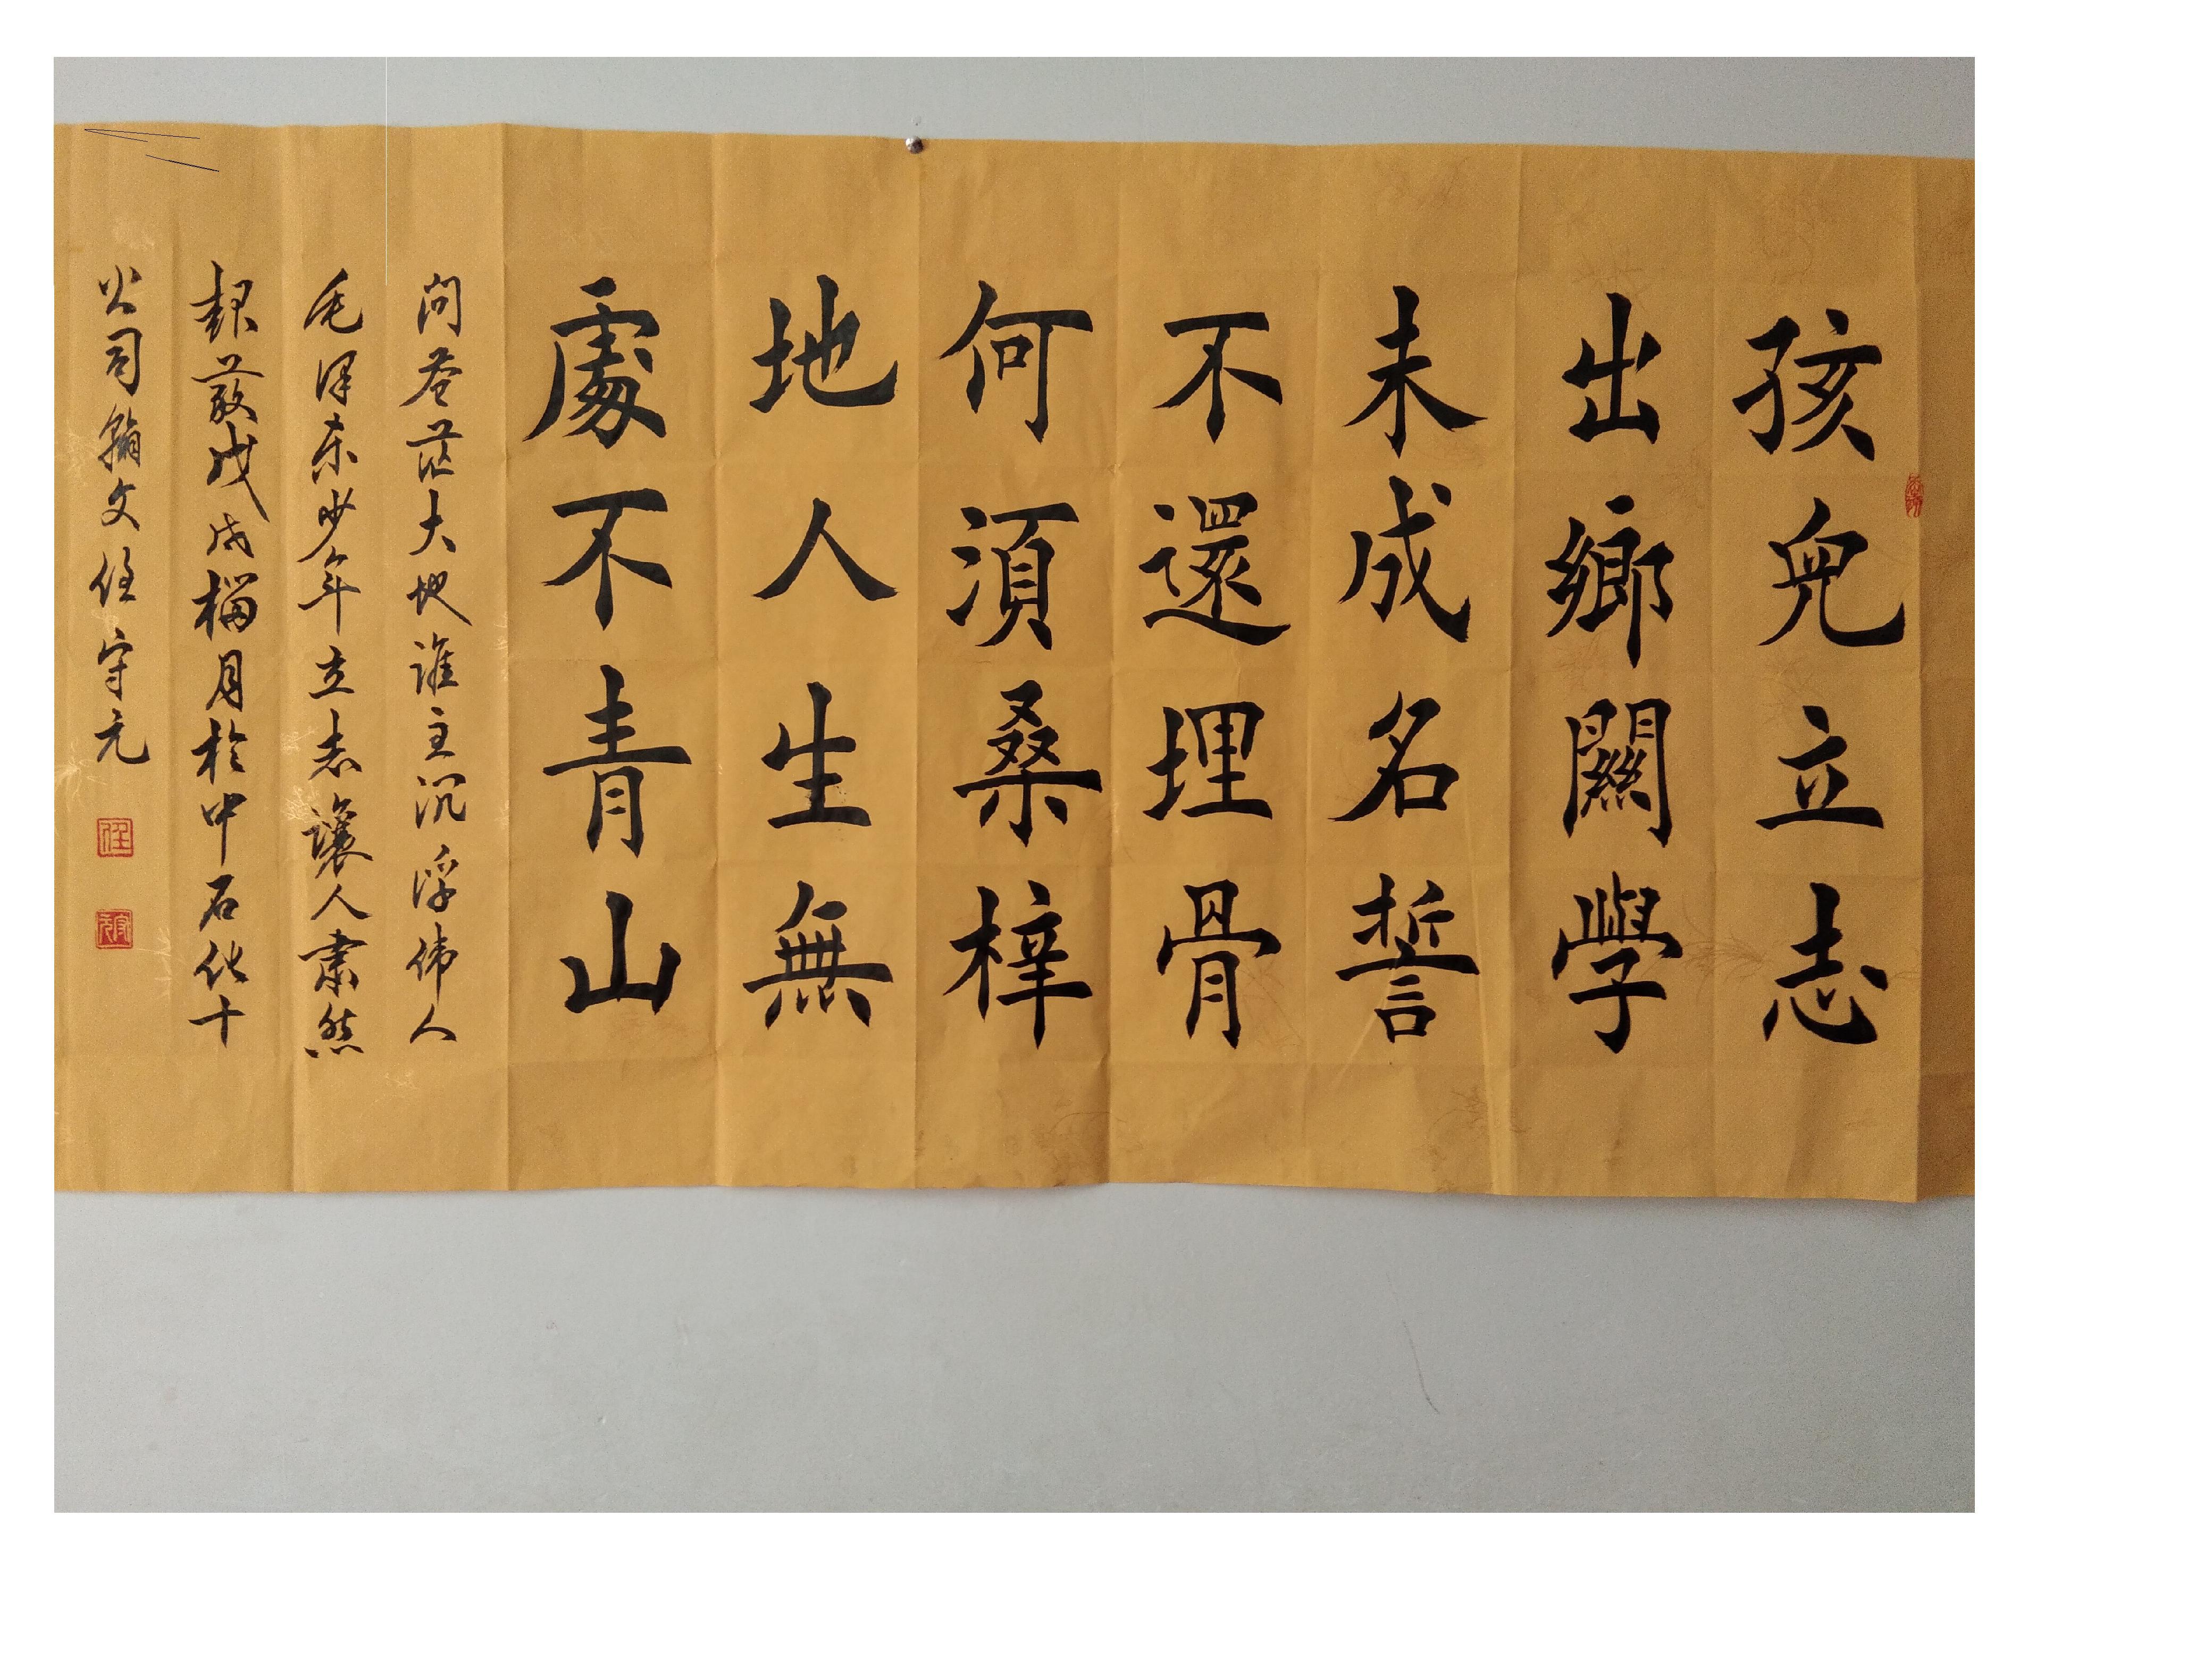 孩兒立志
出鄉關學
未成名誓
不還埋骨
何須桑梓
地人生無
處不青山
问苍茫大地谁主沉浮伟人
毛泽东少年立志讓人肃然
起敬戊戌榴月於中石化十
公司翰文任守元